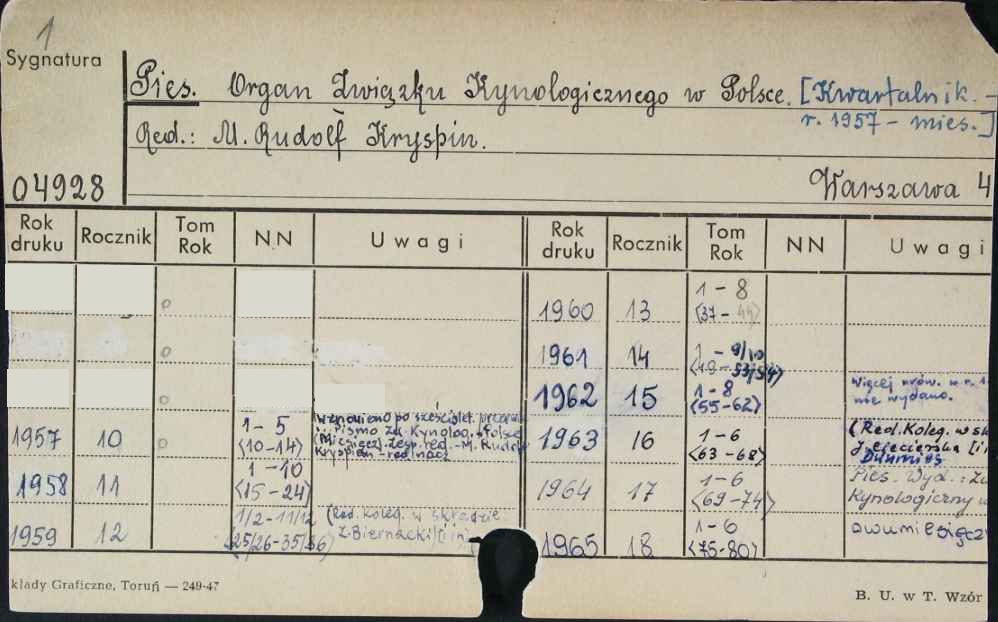 1
Sygnatura
Pies. Organ Związku Kynologicznego w Polsce. [Kwartalnik. -
r. 1957 - mies.]
Red.: M. Rudolf Kryspin.
04928
Warszawa 4
Rok druku Rocznik Tom Rok NN Uwagi Rok druku Rocznik Tom Rok NN Uwagi
1960 13 1-8
<37-
1961 14 1-9/10
<49-53/54>
1962 15 1-8 Więcej nrów.
<55-62> nie wydano.
1957 10 1-5 Wznowiono po sześciolet.
<10-14> Pismo Zw. Kynolog. w Polsce
(Miesięcz). Zesp. red. - M. Rudolf
Kryspin - red. nacz.
1963 16 1-6 (Red. Koleg. w sk
<63-68> J. [i
1958 11 1-10
<15-24>
1964 17 1-6 Pies. Wyd.:
<69-74> Kynologiczny
1959 12 1/2-11/12 (Red. Koleg. w składzie
<25/26-35/36> Z. Biernacki [i in]
1965 18 1-6 dwumiesięcz
<75-80>
kłady Graficzne, Toruń — 249-47
B. U. w T. Wzór